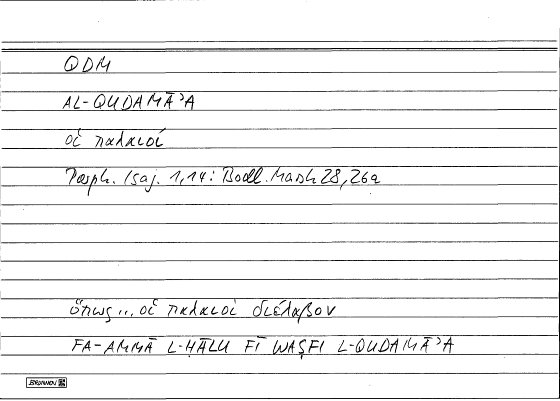 QDM
AL-QUDAMĀʾA
οἱ παλαιοί
Porph. Isag. 1,14: Bodl. Marsh 28, 26a
ὅπως ... οἱ παλαιοὶ διέλαβον
FA-AMMĀ L-ḤĀLU FĪ WAṢFI L-QUDAMĀʾA
BRUNNEN